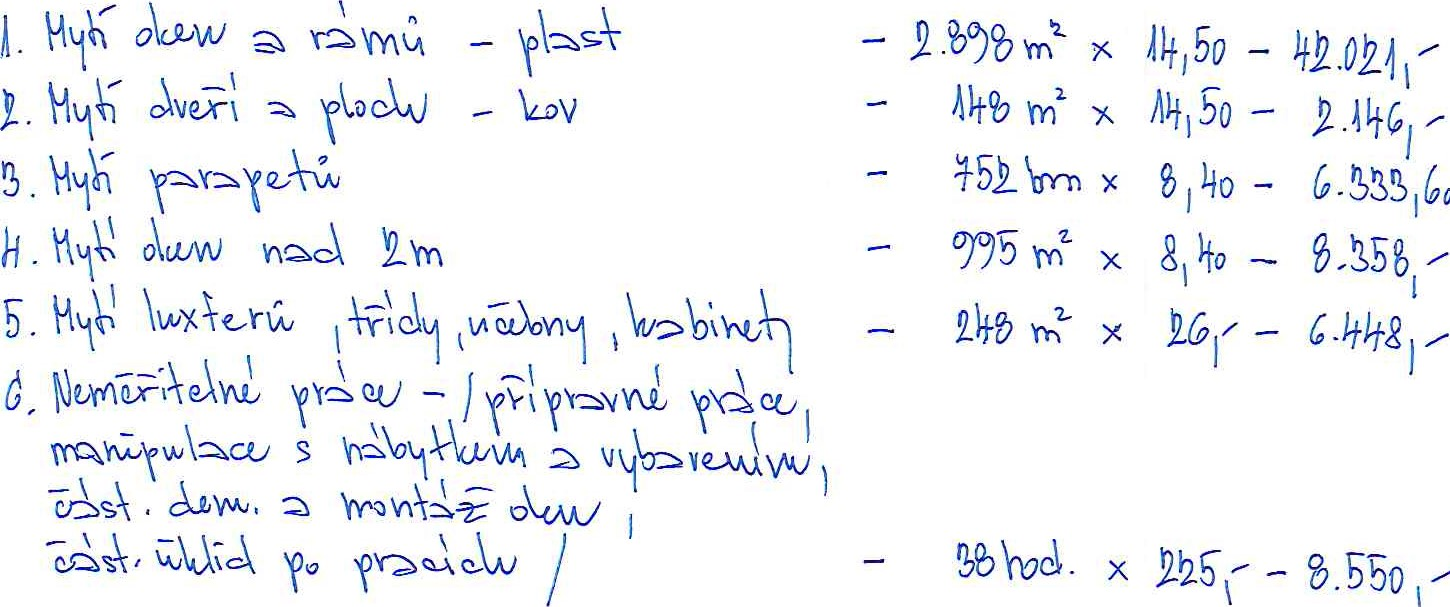 1. Mytí oken a rámů - plast - 2.898 m² × 14,50 - 42.021,-
2. Mytí dveří a ploch - kov - 148 m² × 14,50 - 2.146,-
3. Mytí parapetů - 752 bm × 8,40 - 6.333,60
4. Mytí oken nad 2m - 995 m² × 8,40 - 8.358,-
5. Mytí luxferů, třídy, učebny, kabinety - 248 m² × 26,- - 6.448,-
6. Neměřitelné práce - / přípravné práce,
manipulace s nábytkem a vybavením,
část. dem. a montáž oken,
část. úklid po pracích / - 38 hod. × 225,- - 8.550,-